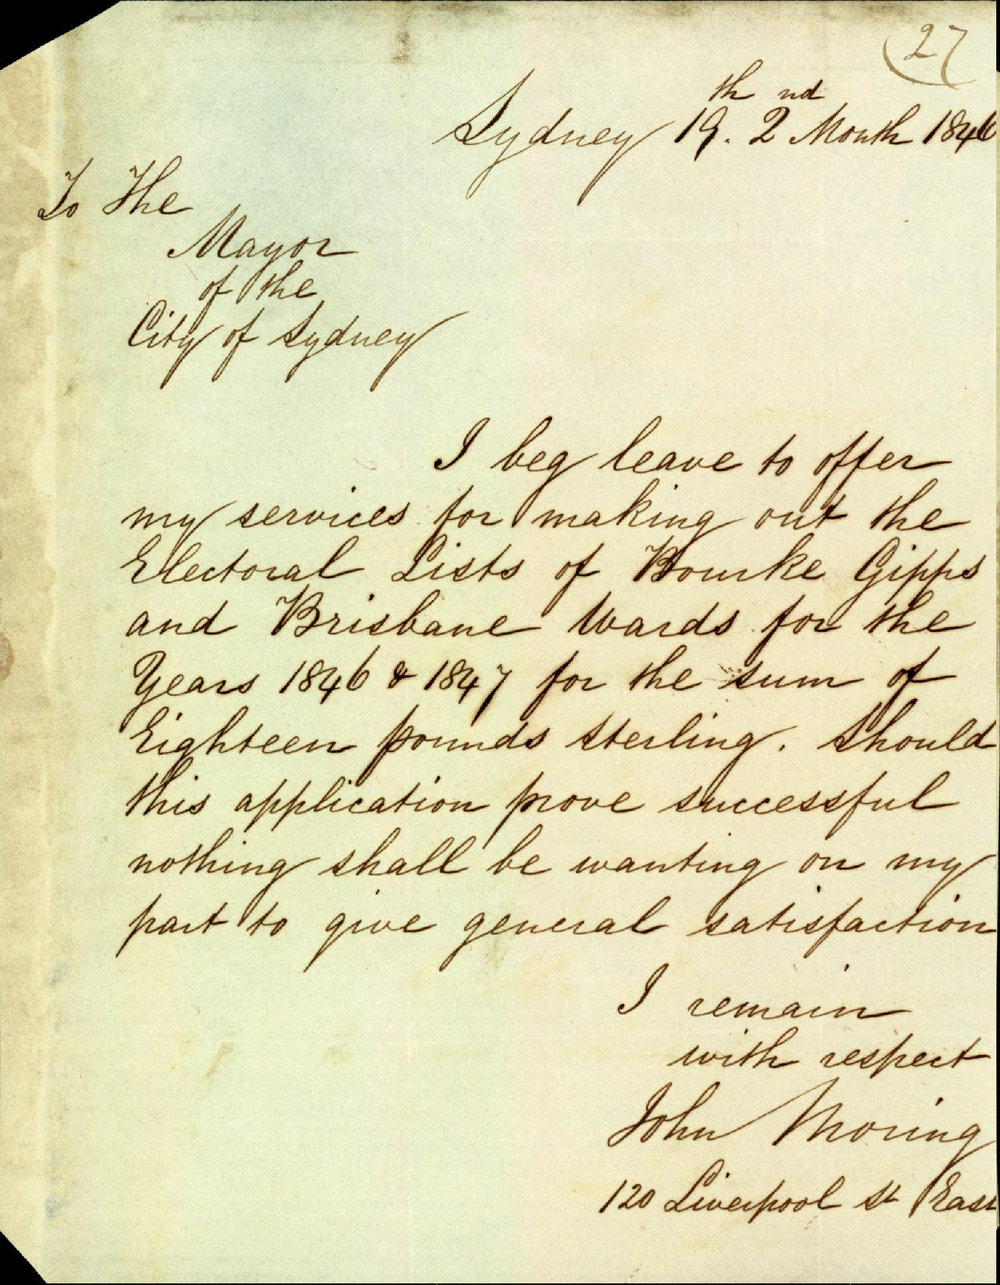 27
Sydney 19th. 2nd Month 1846
To The
Mayor
of the
City of Sydney
I beg leave to offer
my services for making out the
Electoral Lists of Bourke Gipps
and Brisbane Wards for the
Years 1846 & 1847 for the sum of
Eighteen pounds sterling. Should
this application prove successful
nothing shall be wanting on my
part to give general satisfaction
I remain
with respect
John Moring
120 Liverpool St East